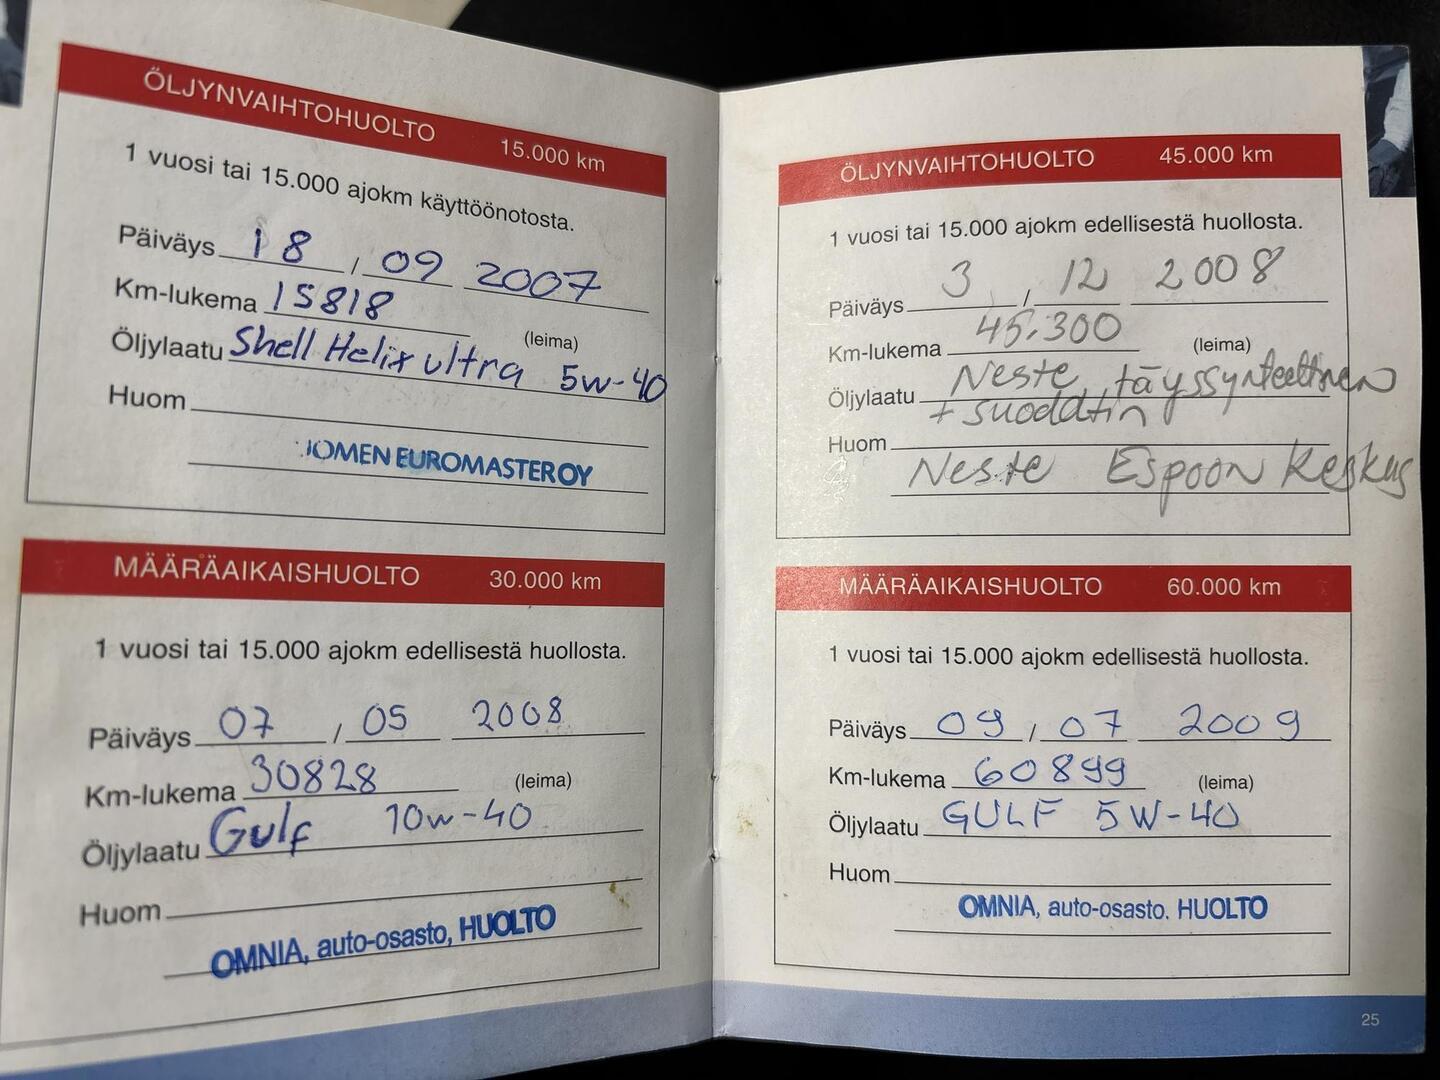 ÖLJYNVAIHTOHUOLTO 15.000 km
1 vuosi tai 15.000 ajokm käyttöönotosta.
Päiväys 18 / 09 2007
Km-lukema 15818
(leima)
Öljylaatu Shell Helix ultra 5w-40
Huom
OMEN EUROMASTER OY
MÄÄRÄAIKAISHUOLTO 30.000 km
1 vuosi tai 15.000 ajokm edellisestä huollosta.
Päiväys 07 / 05 2008
Km-lukema 30828 (leima)
Öljylaatu Gulf 10w-40
Huom
OMNIA, auto-osasto, HUOLTO
ÖLJYNVAIHTOHUOLTO 45.000 km
1 vuosi tai 15.000 ajokm edellisestä huollosta.
Päiväys 3 / 12 2008
Km-lukema 45.300 (leima)
Öljylaatu Neste täyssynteettinen
+ suodatin
Huom
Neste Espoon Keskus
MÄÄRÄAIKAISHUOLTO 60.000 km
1 vuosi tai 15.000 ajokm edellisestä huollosta.
Päiväys 09 / 07 2009
Km-lukema 60899 (leima)
Öljylaatu GULF 5W-40
Huom
OMNIA, auto-osasto. HUOLTO
25